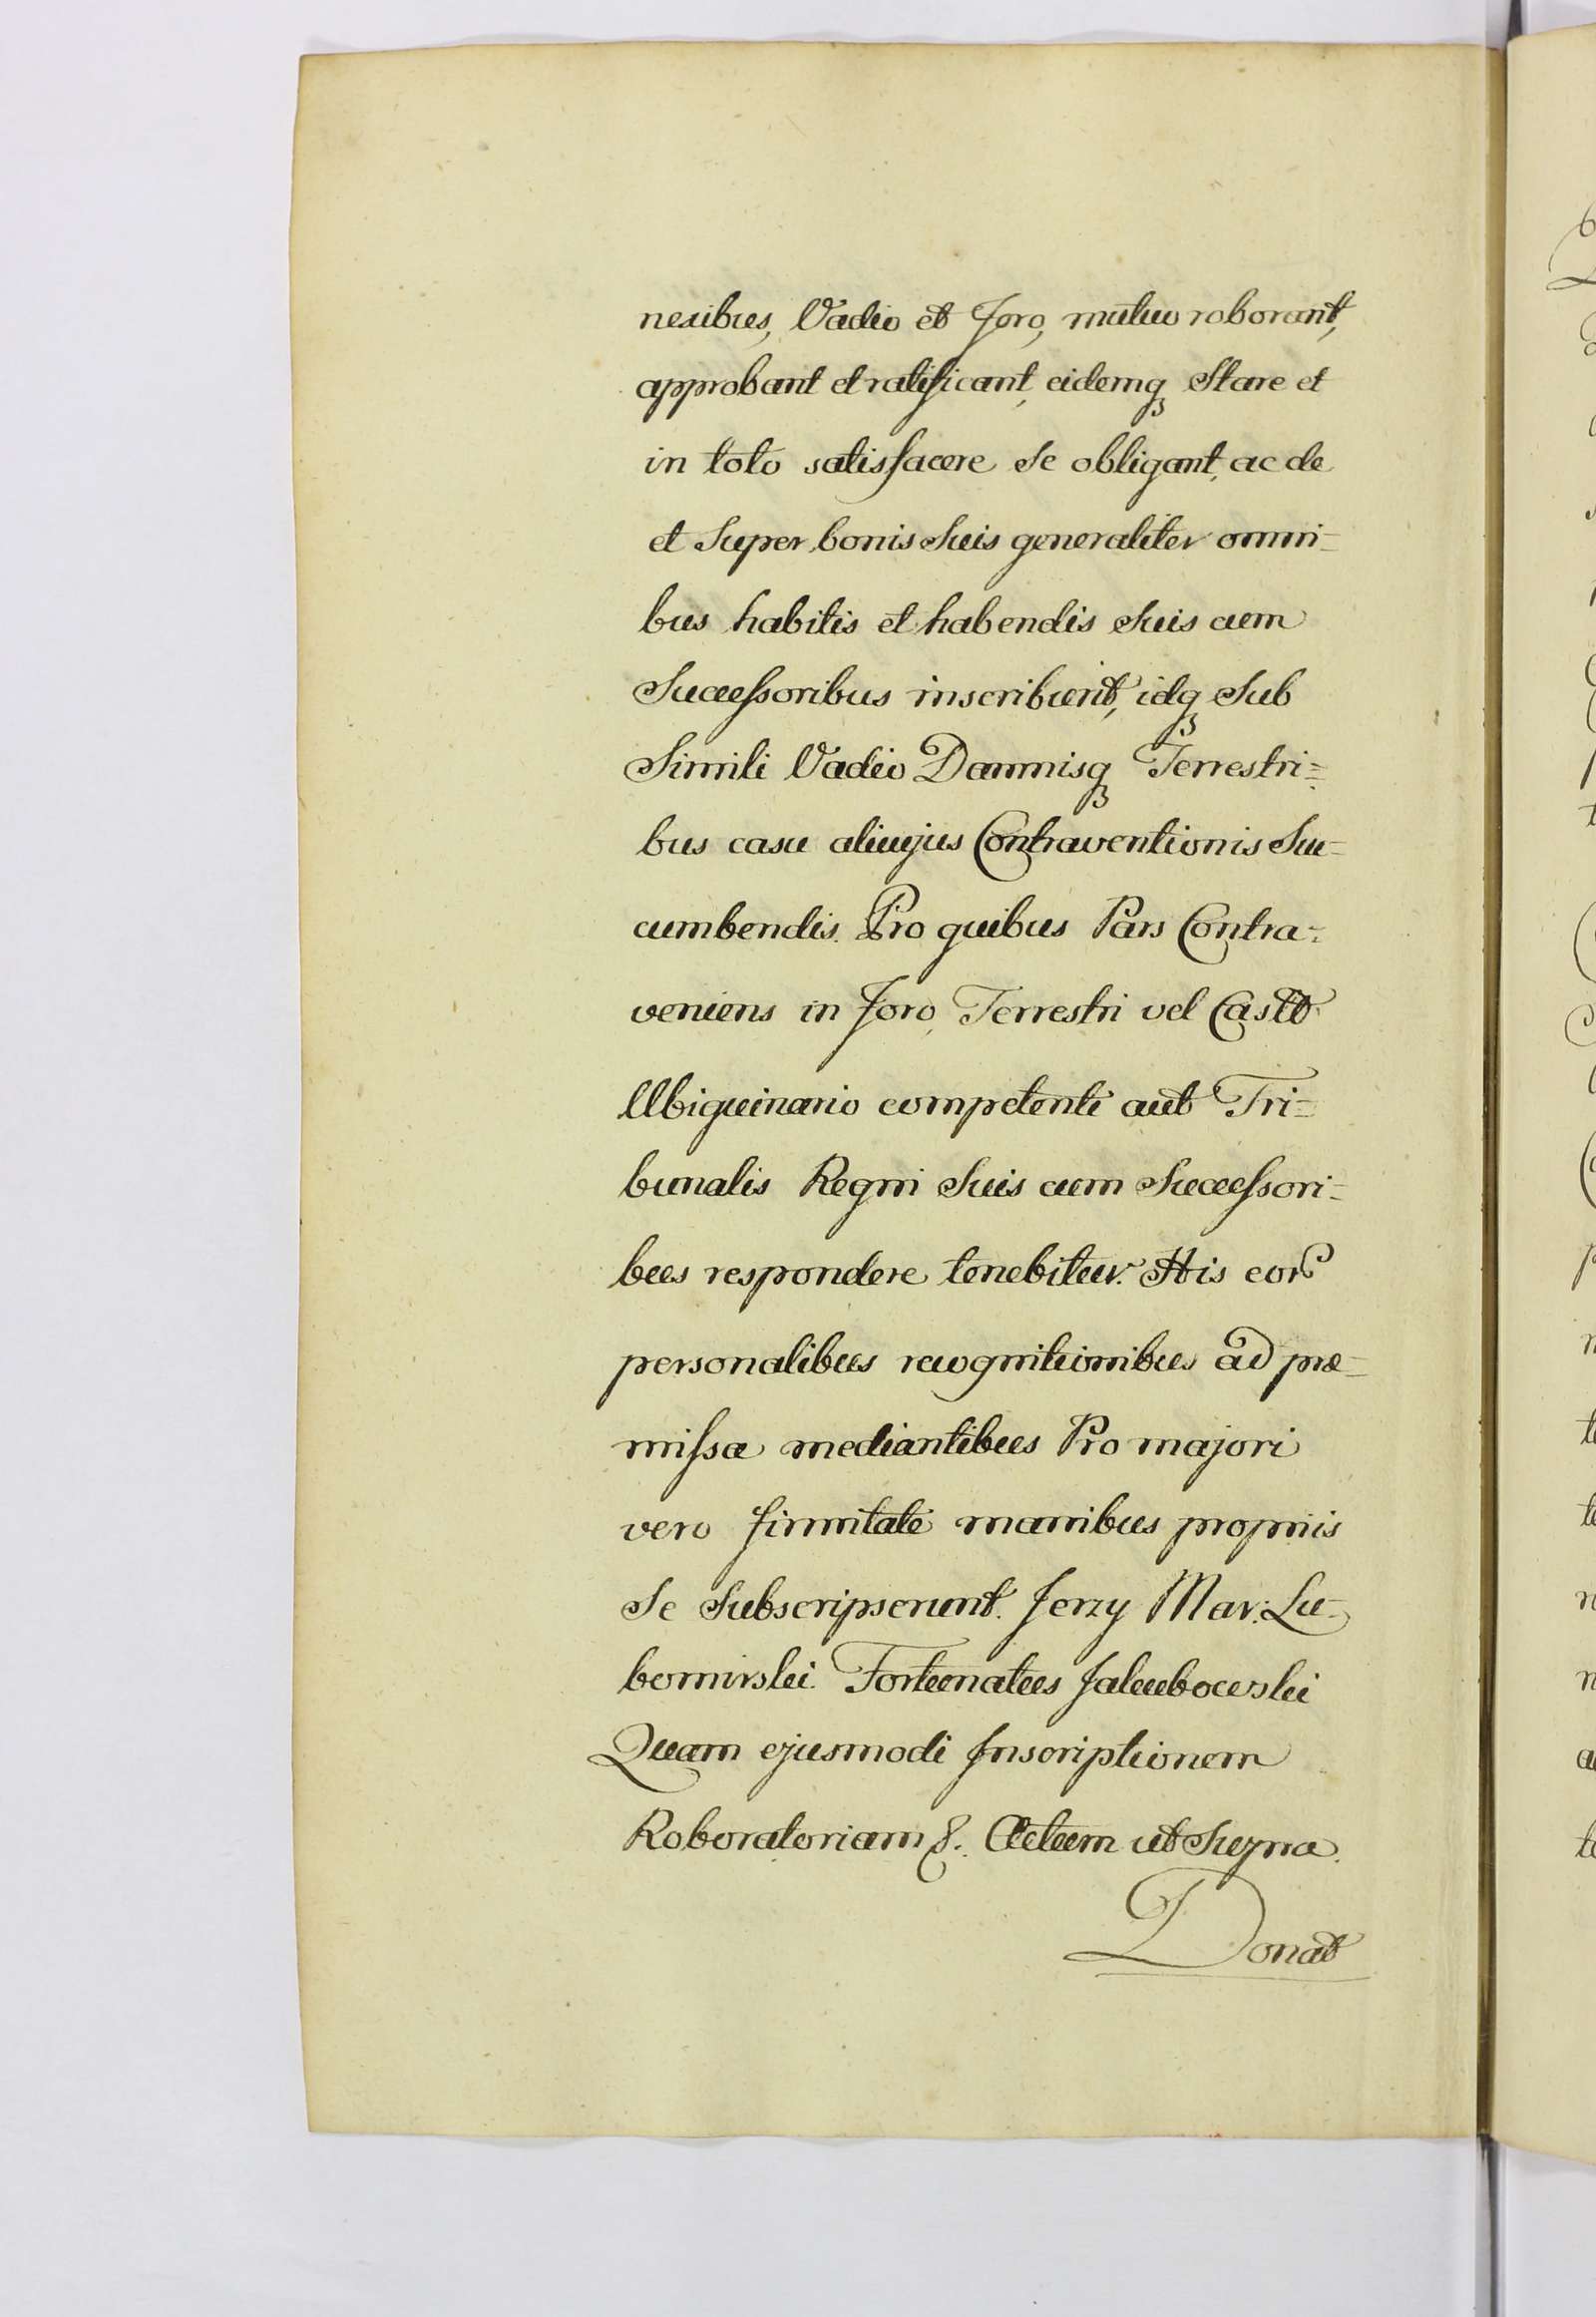 nexibus, Vadio et Foro, mutuo roborant,
approbant et ratificant, eidemq₃ Stare et
in toto satisfacere Se obligant, ac de
et Super bonis Suis generaliter omni=
bus habitis et habendis Suis cum
Successoribus inscribunt, idq₃ Sub
Simili Vadio Damnisq₃ Terrestri=
bus casu alicujus Contraventionis Suc=
cumbendis. Pro quibus Pars Contra=
veniens in Foro Terrestri vel Castr
Ubiquinario competenti aut Tri=
bunalis Regni Suis cum Successori=
bus respondere tenebitur. His eor
personalibus recognitionibus ad præ=
missa mediantibus Pro majori
vero firmitate manibus propriis
Se Subscripserunt. Jerzy Mar: Lu=
bomirski. Fortunatus Jakubowski
Quam ejusmodi Inscriptionem
Roboratoriam &. Actum ut Supra.
Donat